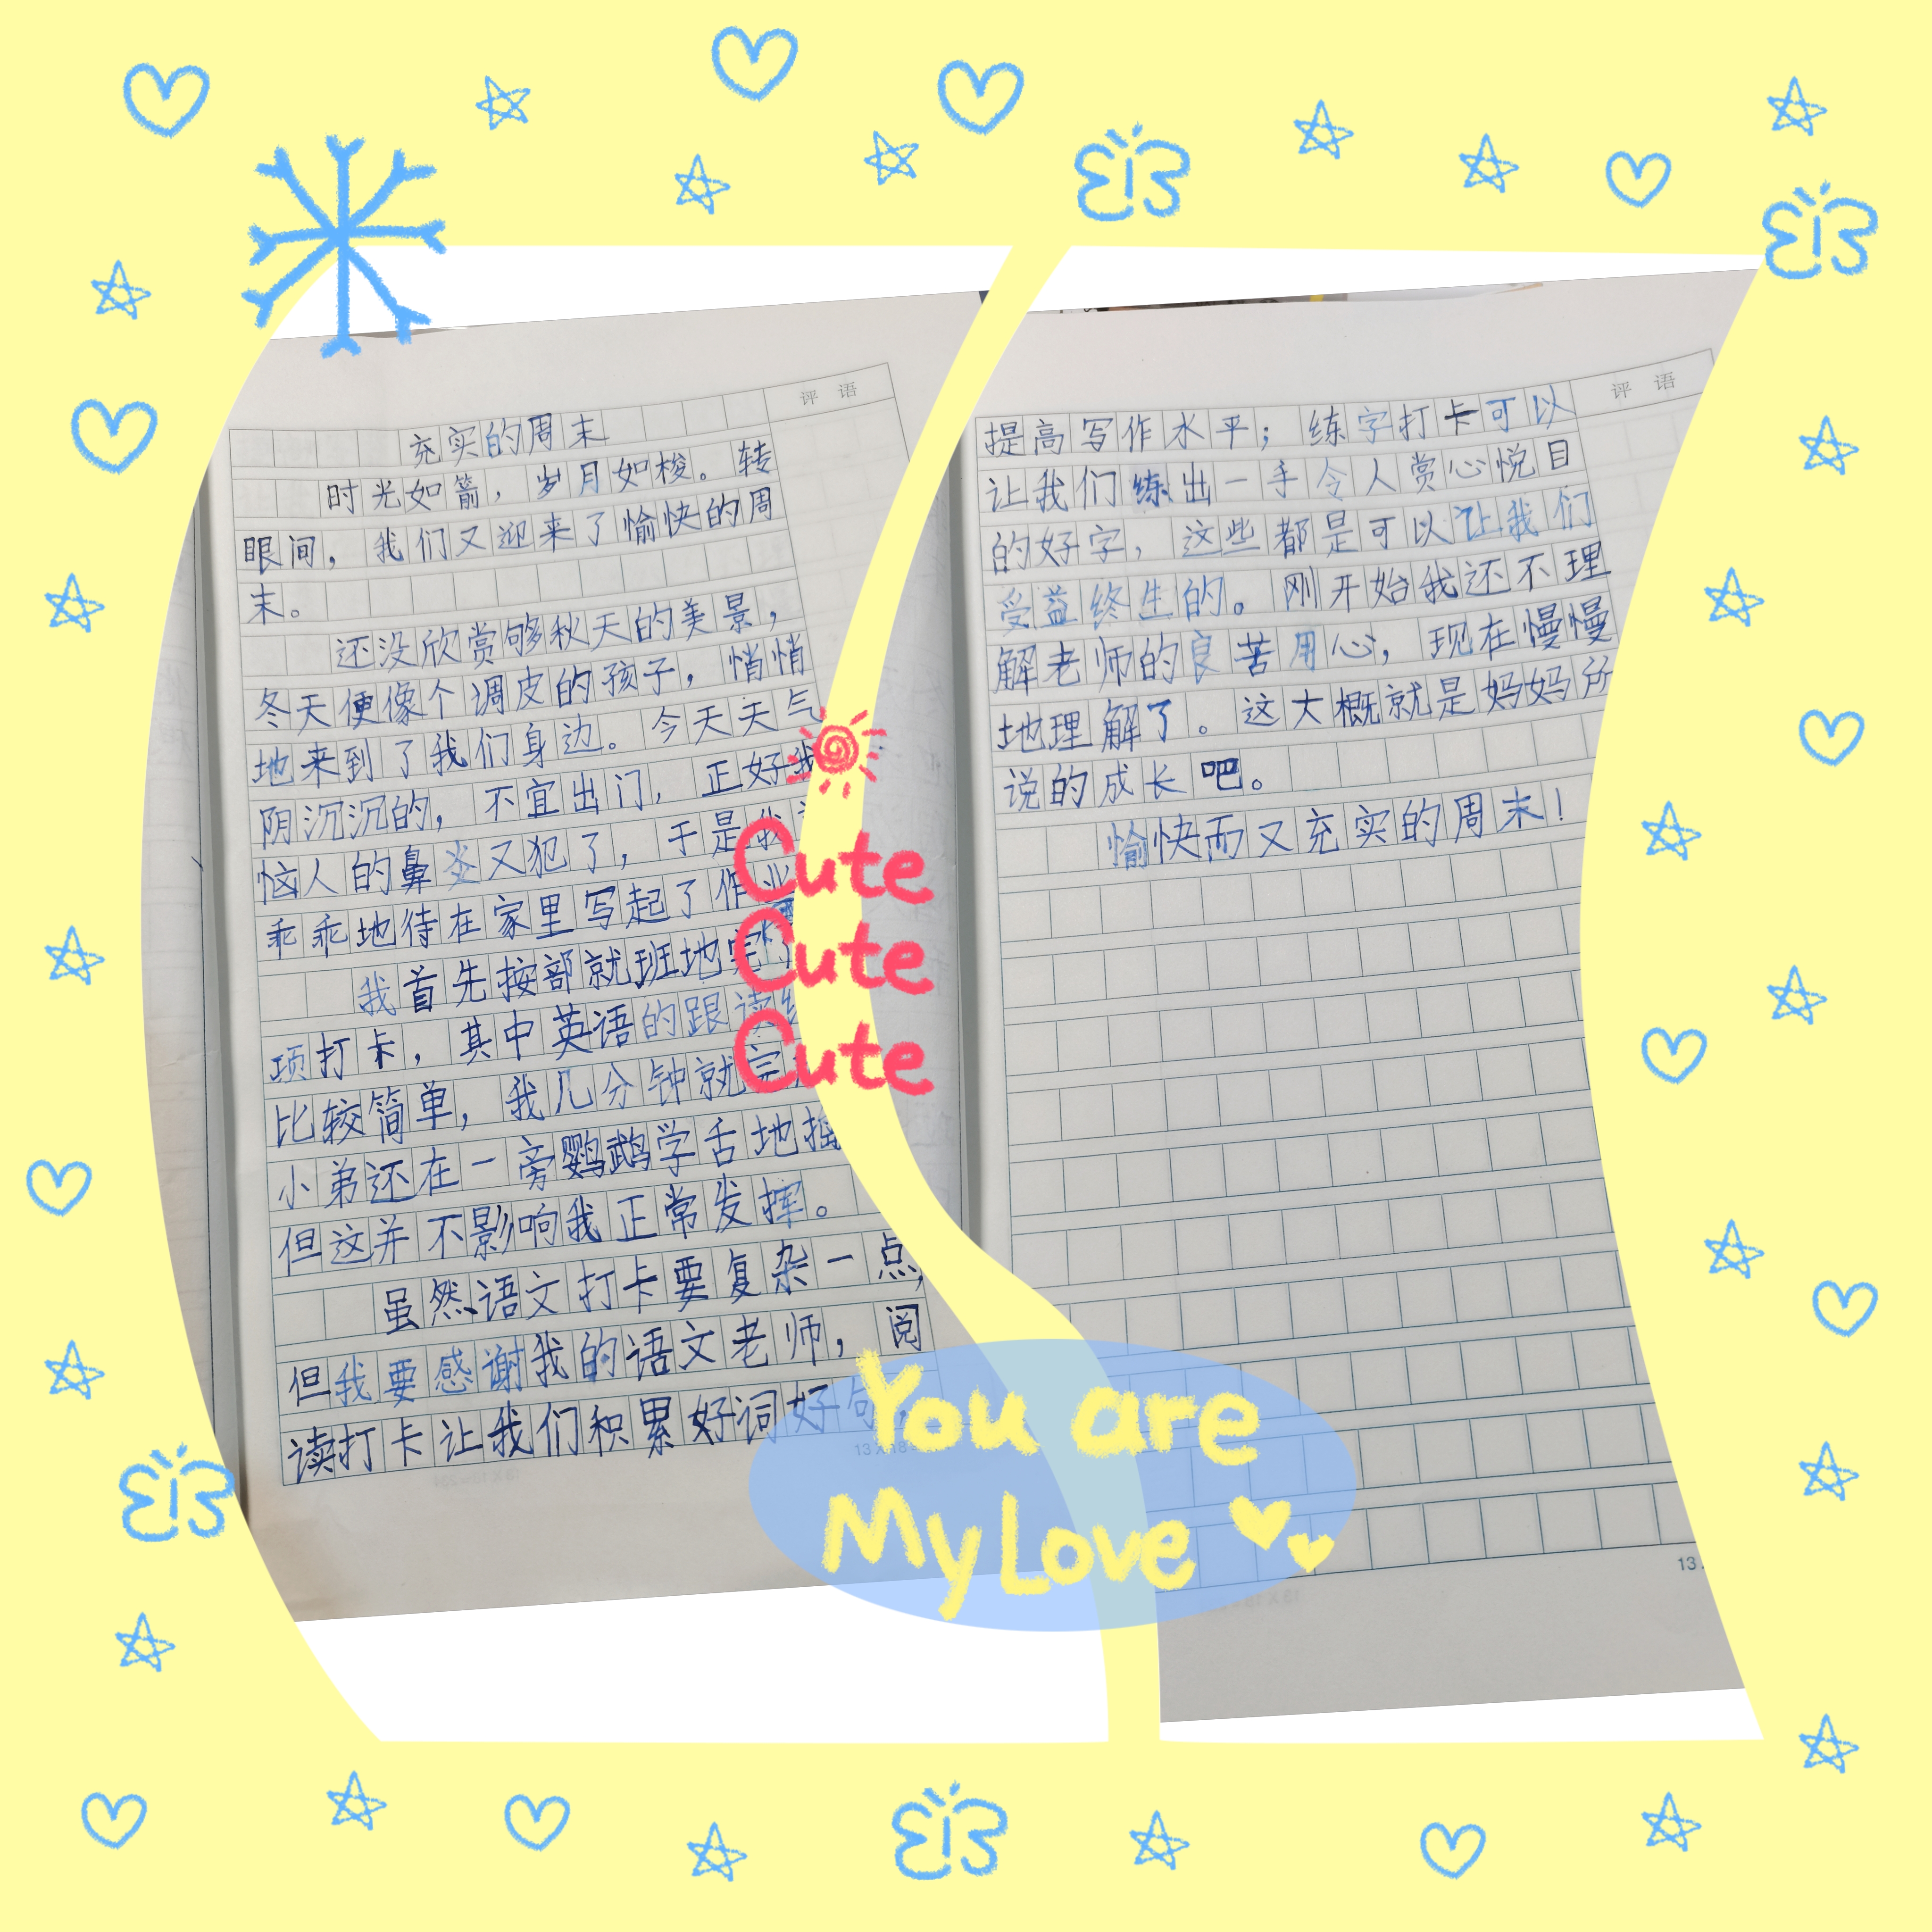 评语
充实的周末
时光如箭，岁月如梭。转
眼间，我们又迎来了愉快的周
末。
还没欣赏够秋天的美景，
冬天便像个调皮的孩子，悄悄
地来到了我们身边。今天天气
阴沉沉的，不宜出门，正好我
恼人的鼻炎又犯了，于是我
乖乖地待在家里写起了作业
我首先按部就班地完
项打卡，其中英语的跟读
比较简单，我几分钟就完
小弟还在一旁鹦鹉学舌地摇
但这并不影响我正常发挥。
虽然语文打卡要复杂一点，
但我要感谢我的语文老师，阅
读打卡让我们积累好词好句，
评语
提高写作水平；练字打卡可以
让我们练出一手令人赏心悦目
的好字，这些都是可以让我们
受益终生的。刚开始我还不理
解老师的良苦用心，现在慢慢
地理解了。这大概就是妈妈所
说的成长吧。
愉快而又充实的周末！
Cute
Cute
Cute
You are
My Love